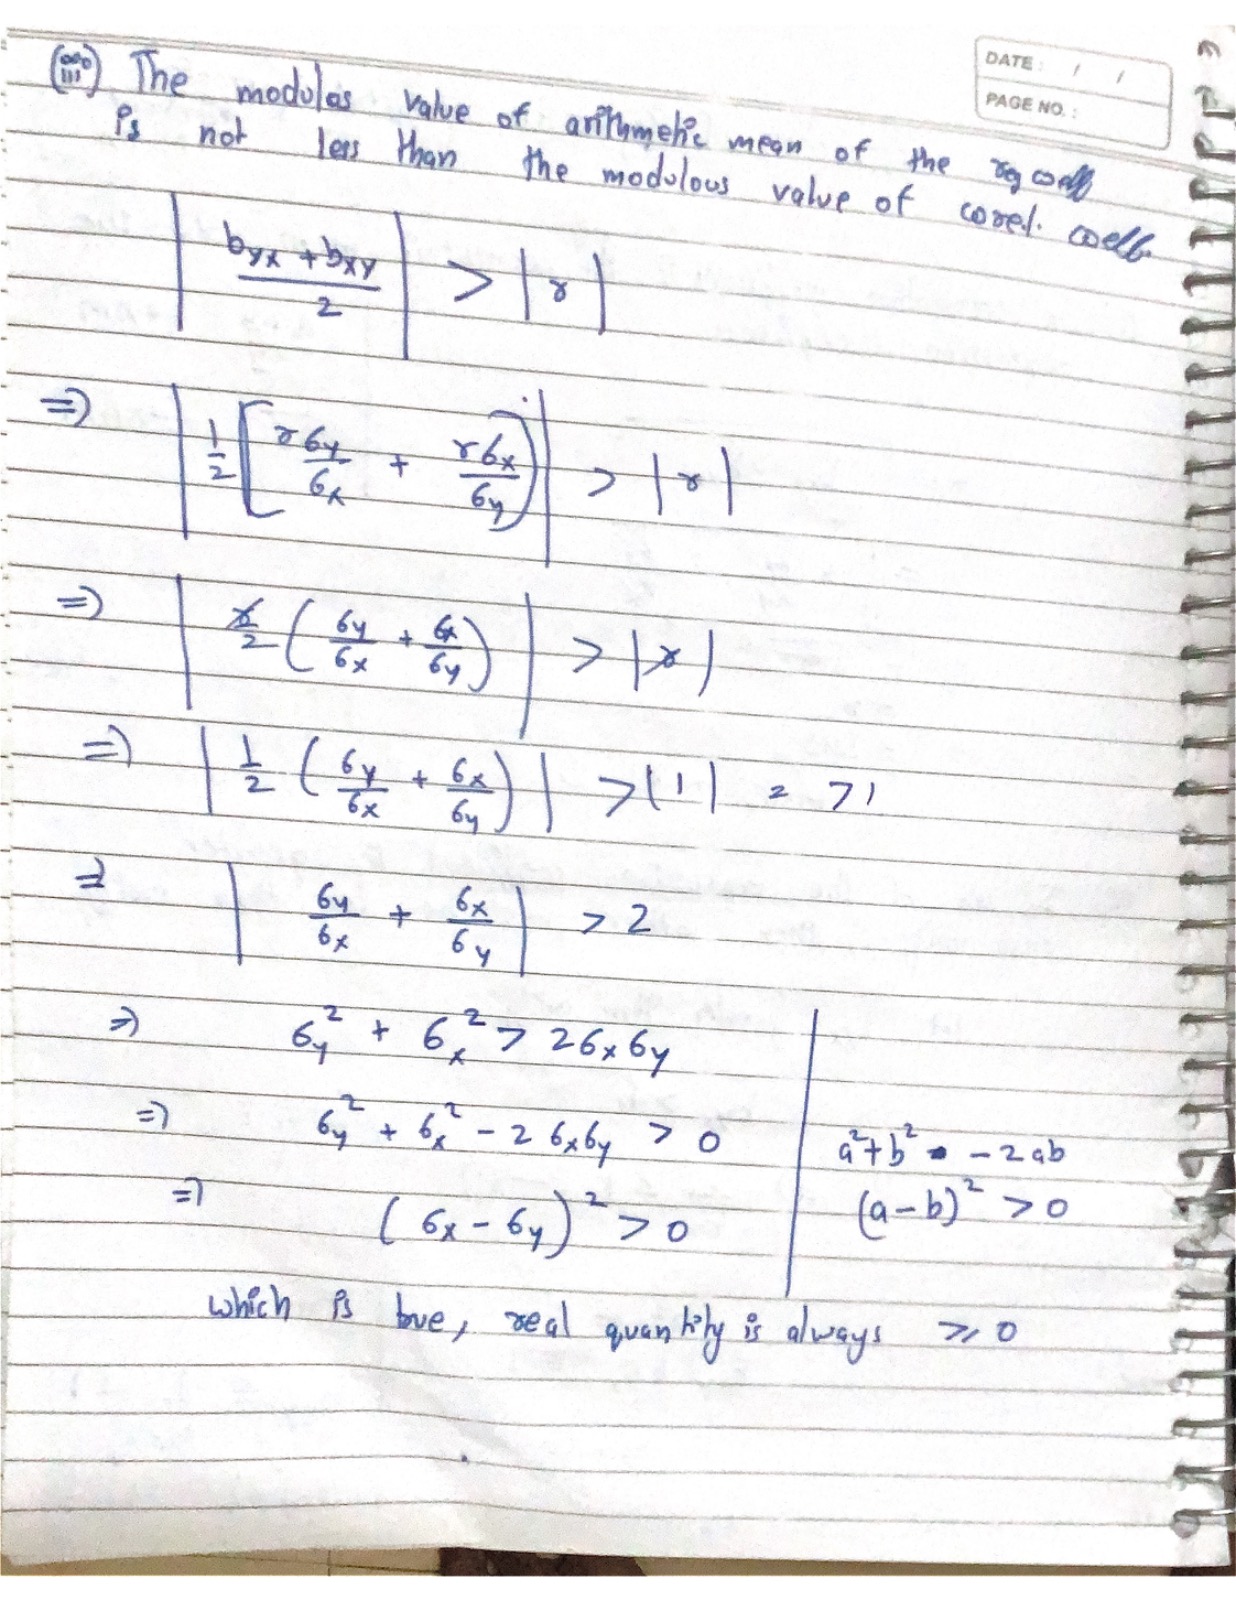 DATE: / /
PAGE NO.:
(iii) The modulas value of arithmetic mean of the reg coeff
is not less than the modulous value of corel. coeff.
| byx + bxy / 2 | > | r |
=) | 1/2 [ r σy/σx + r σx/σy ) | > | r |
=) | r/2 ( σy/σx + σx/σy ) | > | r |
=) | 1/2 ( σy/σx + σx/σy ) | > | 1 | = > 1
=) | σy/σx + σx/σy | > 2
=) σy² + σx² > 2σxσy
=) σy² + σx² - 2 σxσy > 0
a²+b² - 2ab
=) ( σx - σy )² > 0
(a-b)² > 0
which is true, real quantity is always ≥ 0